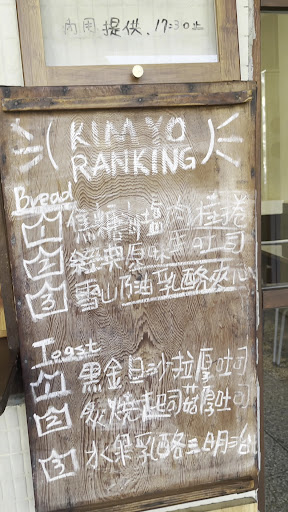 內用提供. 17:30止
KIMYO
RANKING
Bread
1 焦糖鹽肉桂捲
2 經典原味生吐司
3 雪山奶油乳酪夾心
Toast
1 黑金旦沙拉厚吐司
2 炭燒起司菇厚吐司
3 水果乳酪三明治